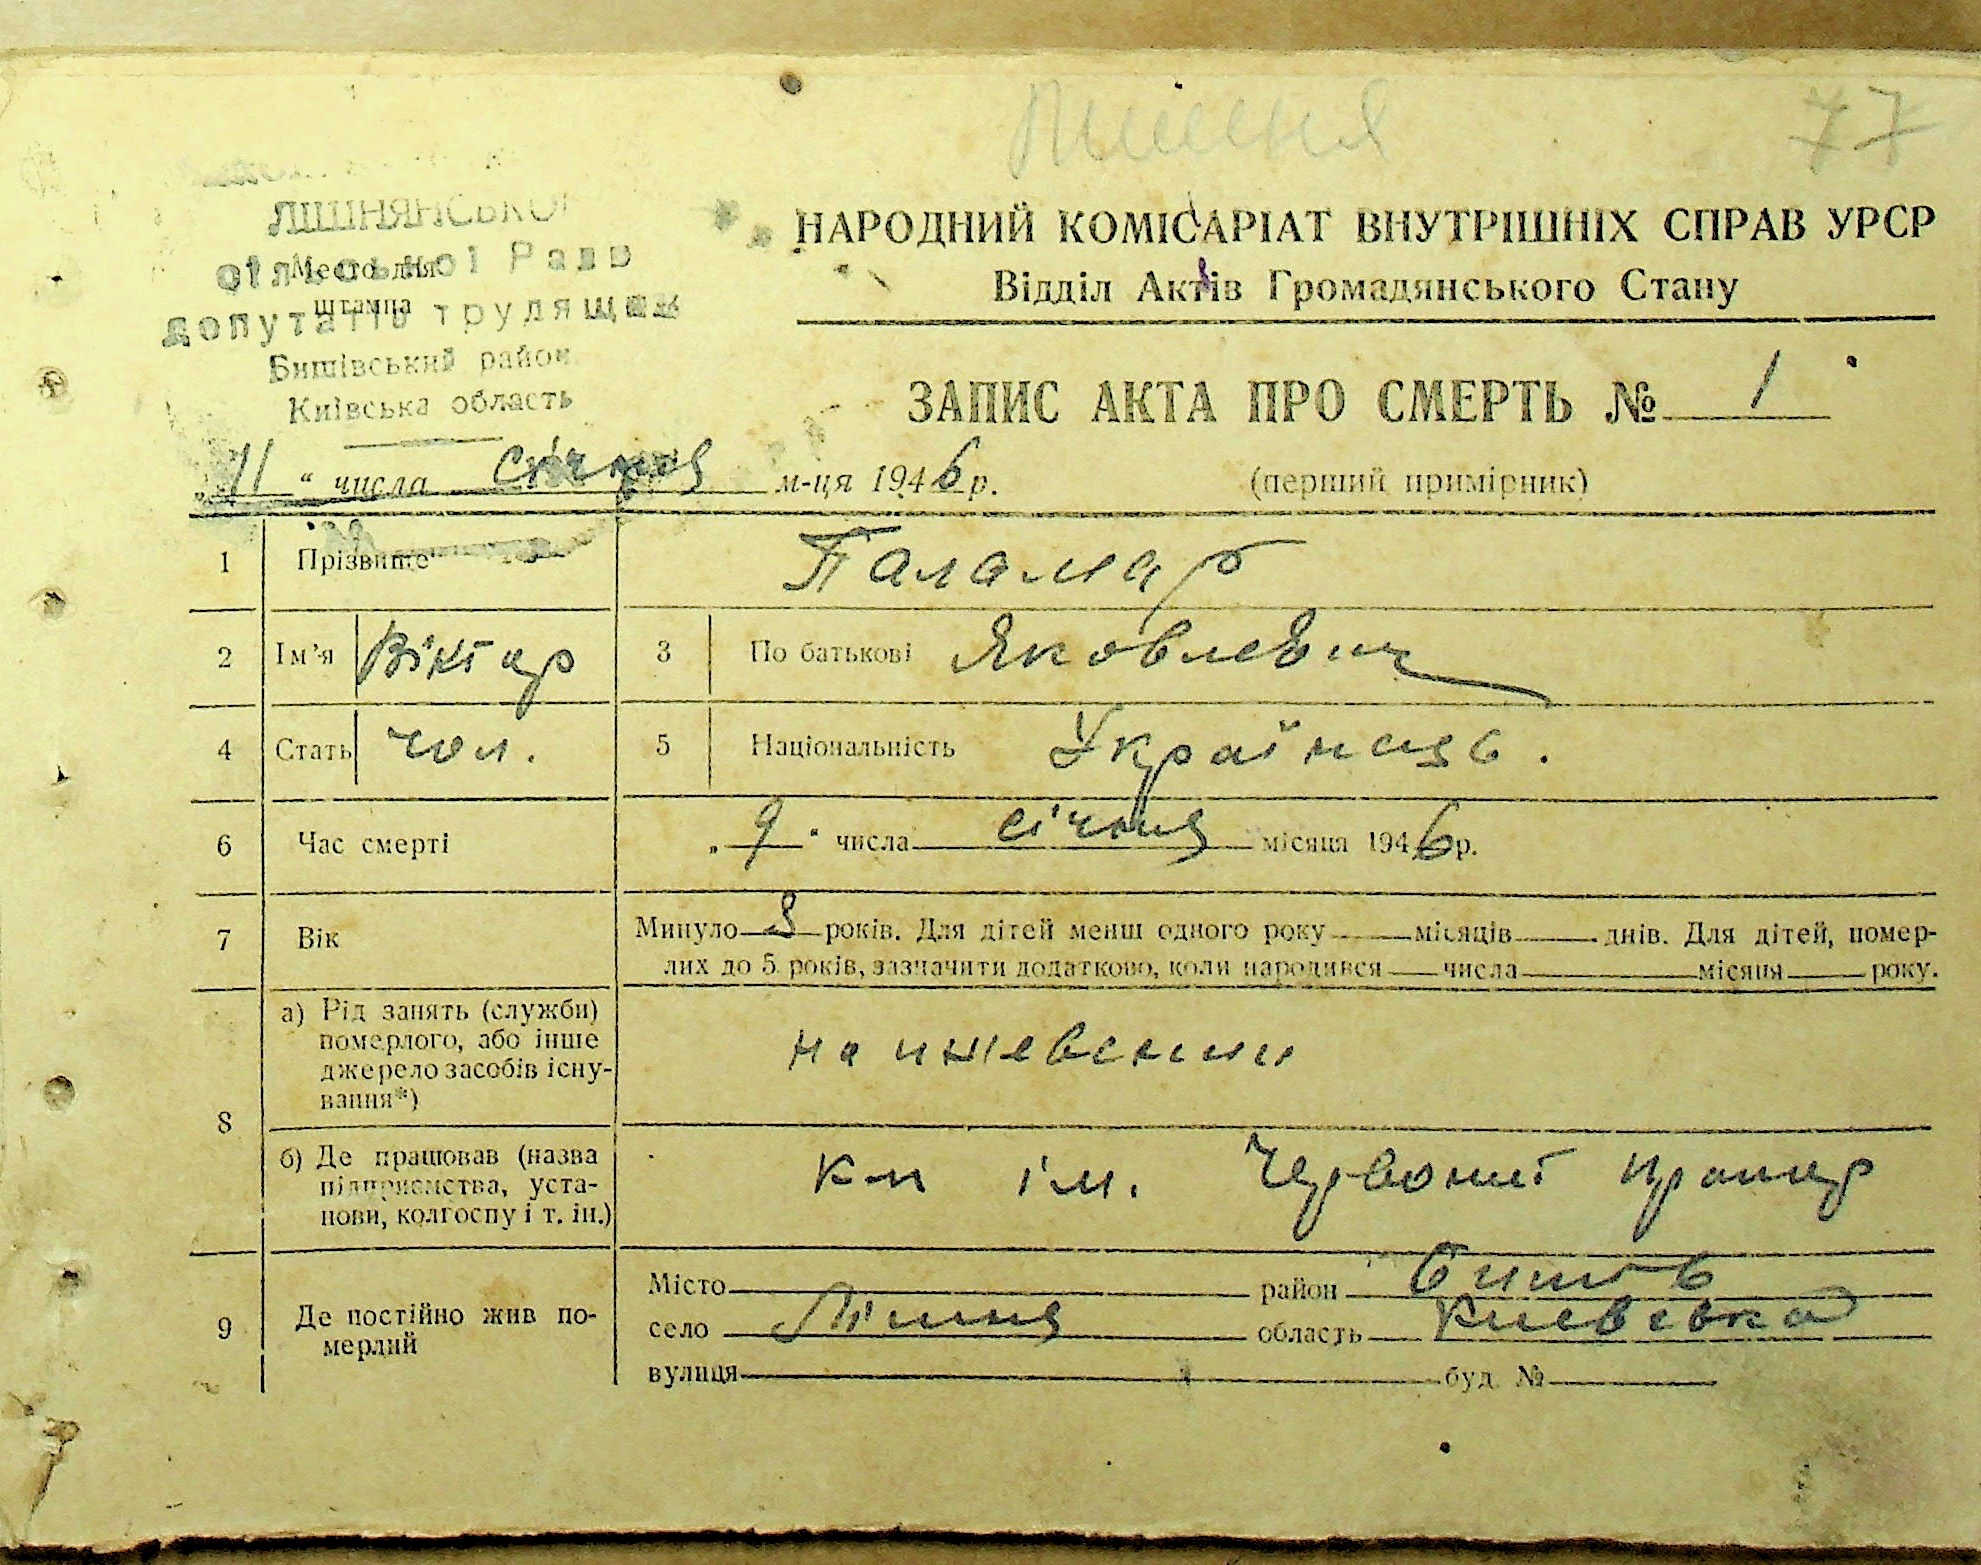 Лишня 77
ЛІШНЯНСЬКОЇ
сільської Ради
депутатів трудящих
Место для
штампа
Бишівський район
Київська область
НАРОДНИЙ КОМІСАРІАТ ВНУТРІШНІХ СПРАВ УРСР
Відділ Актів Громадянського Стану
ЗАПИС АКТА ПРО СМЕРТЬ № 1
„11" числа січня м-ця 1946 р. (перший примірник)
1 Прізвище Паламар
2 Ім'я Віктор 3 По батькові Яковлевич
4 Стать чол. 5 Національність Українець.
6 Час смерті „9" числа січня місяця 1946 р.
7 Вік Минуло 8 років. Для дітей менш одного року місяців днів. Для дітей, помер-
лих до 5 років, зазначити додатково, коли народився числа місяця року.
8 а) Рід занять (служби)
померлого, або інше
джерело засобів існу-
вання*)
на ижевении
б) Де працював (назва
підприємства, уста-
нови, колгоспу і т. ін.)
к-п ім. Червоний прапор
9 Де постійно жив по-
мерлий
Місто район Бишів
село Лішня область Киевівка
вулиця буд. №